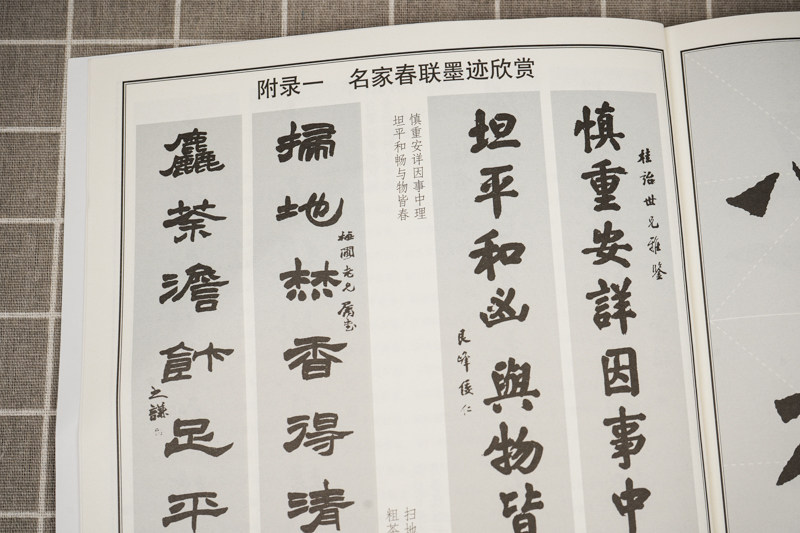 附录一 名家春联墨迹欣赏
慎重安詳因事中
桂治世兄雅鉴
坦平和
與物皆
慎重安详因事中理
坦平和畅与物皆春
掃地焚香得清
老兄属书
麤茶澹飰足平
之謙
扫地
粗茶